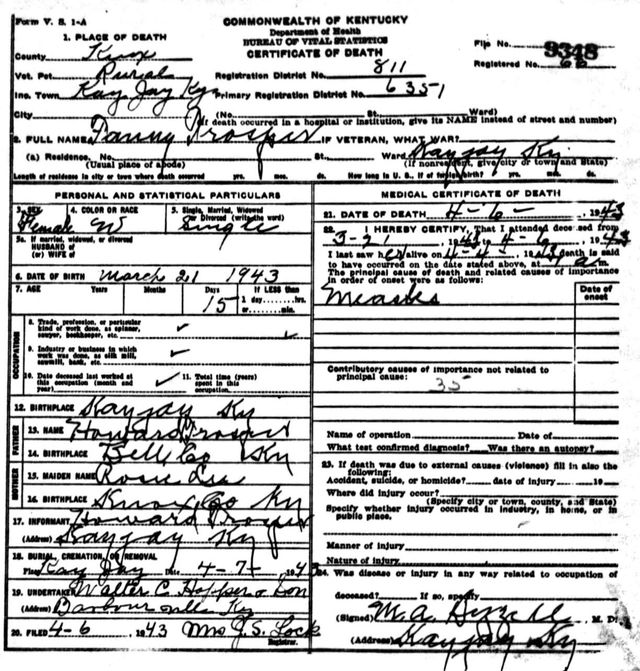 Form V. S. 1-A
COMMONWEALTH OF KENTUCKY
Department of Health
BUREAU OF VITAL STATISTICS
CERTIFICATE OF DEATH
File No. 9348
Registered No. 66
1. PLACE OF DEATH
County Knox
Vot. Pct. Rural
Registration District No. 811
Inc. Town Kay Jay Ky Primary Registration District No. 6351
City (No. St. Ward)
(If death occurred in a hospital or institution, give its NAME instead of street and number)
2. FULL NAME Fanny Prosper IF VETERAN, WHAT WAR?
(a) Residence. No. St. Ward Kayjay Ky.
(Usual place of abode) (If nonresident, give city or town and State)
Length of residence in city or town where death occurred yrs. mos. ds. How long in U. S., if of foreign birth? yrs. mos. ds.
PERSONAL AND STATISTICAL PARTICULARS
3. SEX Female
4. COLOR OR RACE W
5. Single, Married, Widowed or Divorced (write the word) Single
5a. If married, widowed, or divorced
HUSBAND of
(or) WIFE of
6. DATE OF BIRTH March 21 1943
7. AGE Years Months Days If LESS than
15 1 day hrs.
or min.
OCCUPATION
8. Trade, profession, or particular
kind of work done, as spinner,
sawyer, bookkeeper, etc.
9. Industry or business in which
work was done, as silk mill,
sawmill, bank, etc.
10. Date deceased last worked at
this occupation (month and
year)
11. Total time (years)
spent in this
occupation
12. BIRTHPLACE Kayjay Ky
FATHER
13. NAME Howard Prosper
14. BIRTHPLACE Bell Co Ky
MOTHER
15. MAIDEN NAME Rosie Lee
16. BIRTHPLACE Knox Co Ky
17. INFORMANT Howard Prosper
(Address) Kayjay Ky
18. BURIAL, CREMATION, OR REMOVAL
Place Kay Jay Date 4-7- 1943
19. UNDERTAKER Walter C. Hopper & Son
(Address) Barbourville Ky
20. FILED 4-6 1943 Mrs J. S. Lock
Registrar.
MEDICAL CERTIFICATE OF DEATH
21. DATE OF DEATH 4-6- 1943
22. I HEREBY CERTIFY, That I attended deceased from
3-21 1943 to 4-6 1943
I last saw her alive on 4-4- 1943 death is said
to have occurred on the date stated above, at 1 a m.
The principal cause of death and related causes of importance
in order of onset were as follows:
Date of onset
Measles
Contributory causes of importance not related to
principal cause:
35
Name of operation Date of
What test confirmed diagnosis? Was there an autopsy?
23. If death was due to external causes (violence) fill in also the
following:
Accident, suicide, or homicide? date of injury 19
Where did injury occur?
(Specify city or town, county, and State)
Specify whether injury occurred in industry, in home, or in
public place.
Manner of injury
Nature of injury
24. Was disease or injury in any way related to occupation of
deceased? If so, specify
(Signed) M. A. M. D.
(Address) Kayjay Ky